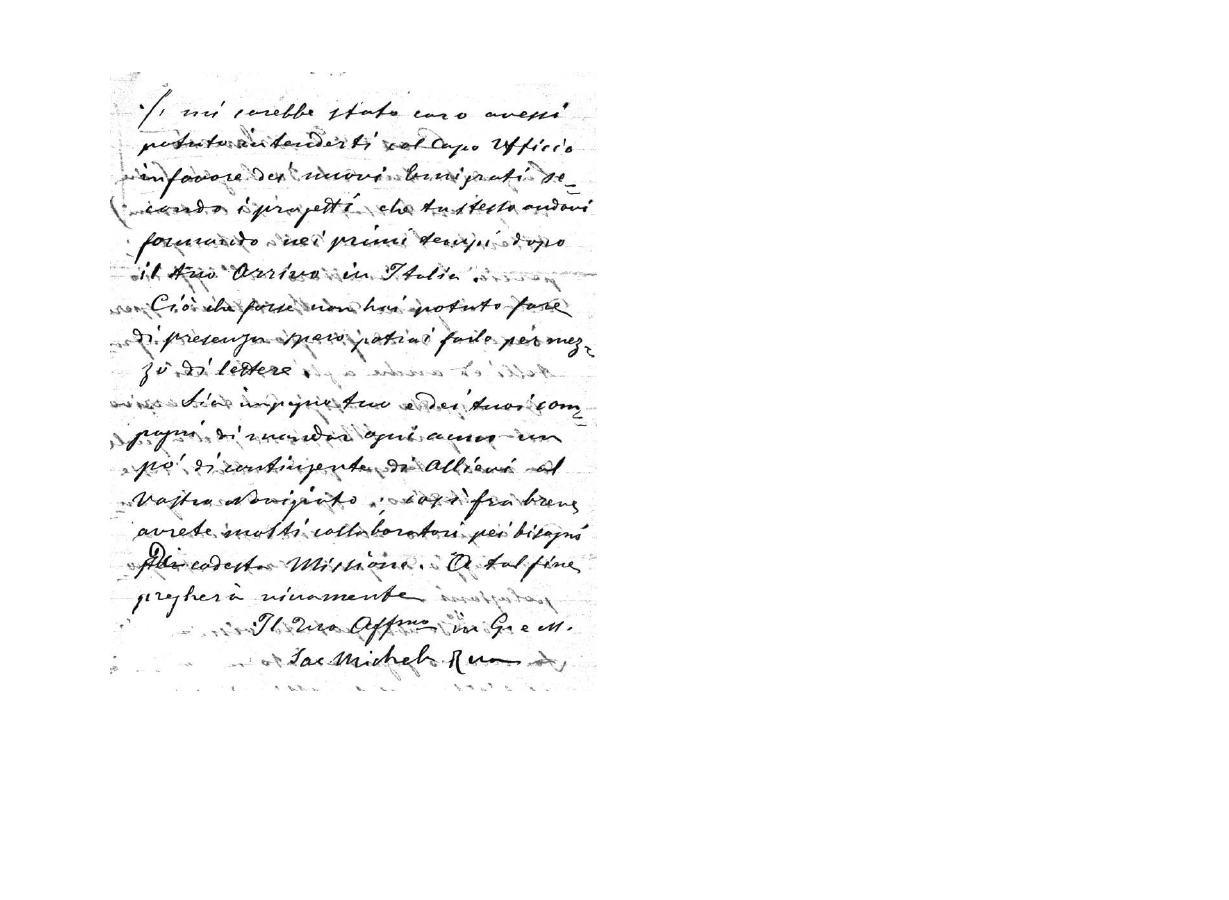 /. mi sarebbe stato caro avessi
potuto intenderti col Capo Ufficio
in favore dei nuovi Emigrati se-
condo i progetti che tu stesso andavi
formando nei primi tempi dopo
il tuo Arrivo in Italia.
Ciò che forse non hai potuto fare
di presenza spero potrai farlo per mez-
zo di lettere.
Sia impegno tuo e dei tuoi com-
pagni di mandar ogni anno un
po' di contingente di Allievi al
vostro Noviziato; così fra breve
avrete molti collaboratori pei bisogni
di codesta Missione. A tal fine
pregherà vivamente
Il Tuo Affmo in G. e M.
Sac Michele Rua